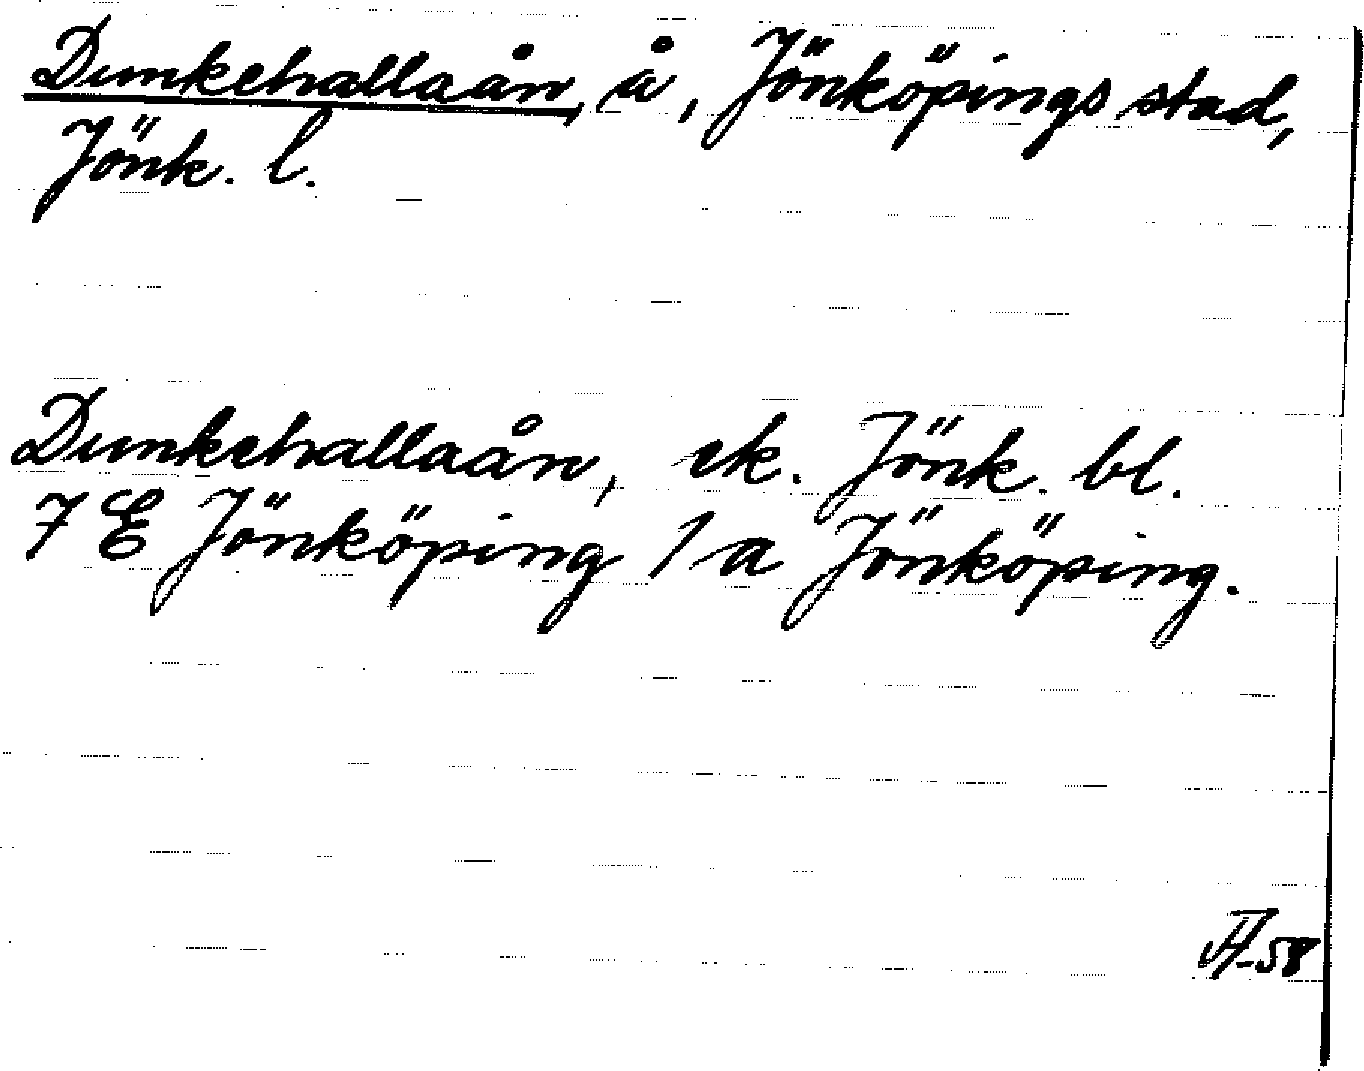 Dunkehallaån, å, Jönköpings stad,
Jönk. l.
Dunkehallaån, ek. Jönk. bl.
7 E Jönköping 1 a Jönköping.